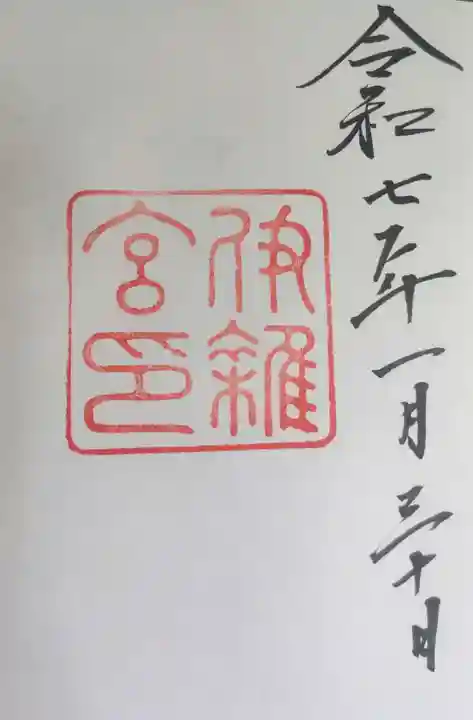 令和七年一月三十日
伊雜
宮印